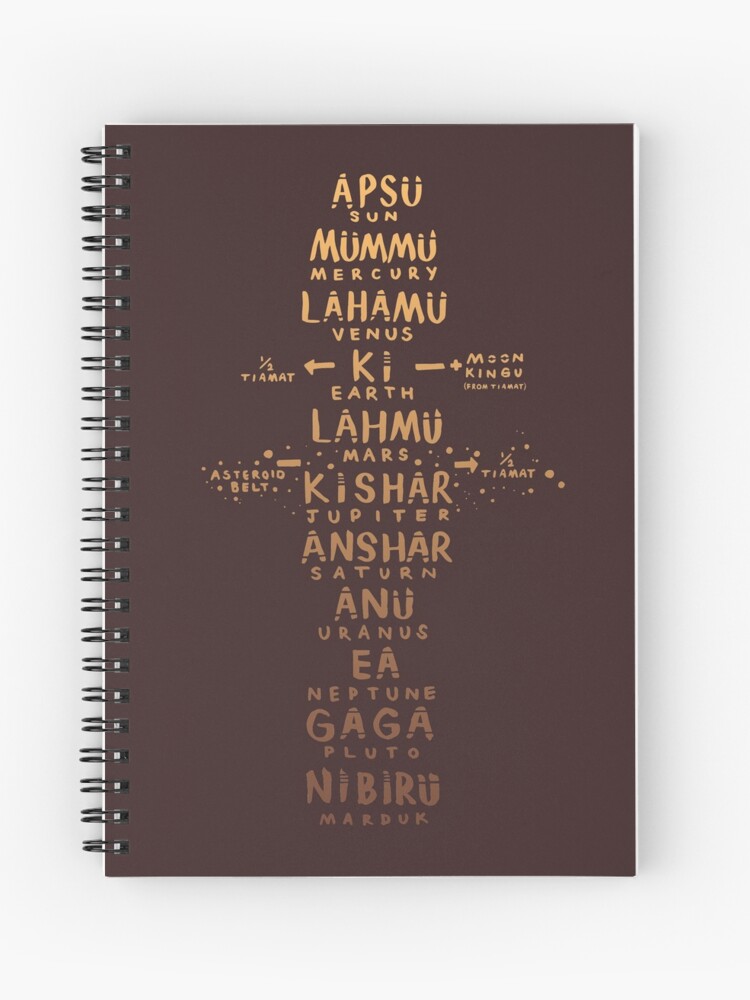 APSU
SUN
MUMMU
MERCURY
LAHAMU
VENUS
1/2
TIAMAT
KI
MOON
KINGU
(FROM TIAMAT)
EARTH
LAHMU
MARS
ASTEROID
BELT
KISHAR
1/2
TIAMAT
JUPITER
ANSHAR
SATURN
ANU
URANUS
EA
NEPTUNE
GAGA
PLUTO
NIBIRU
MARDUK